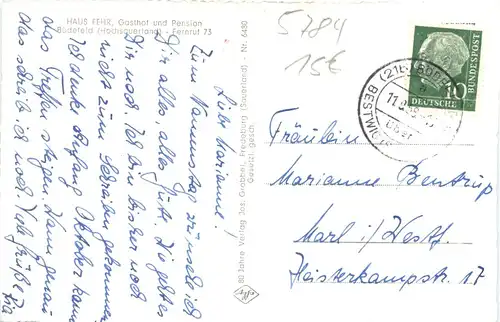 HAUS FEHR, Gasthof und Pension
Bödefeld (Hochsauerland) - Fernruf 73
Liebe Marianne!
Zum Namenstag wünsche ich
Dir alles, alles Gute. Wie geht es
Dir noch? Ich bin bisher noch
nicht zum Schreiben gekommen.
Ich denke Anfang Oktober kann
das Treffen steigen. Wann genau
das schreib ich noch. Viele Grüße
80 Jahre Verlag Jos. Grobbel, Fredeburg (Sauerland) - Nr. 6430
Gesetzl. gesch.
5784
15€
10
DEUTSCHE
BUNDESPOST
(21b)
BESTWIG
Fräulein
Marianne Bentrup
Marl i/Westf.
Heisterkampstr. 17